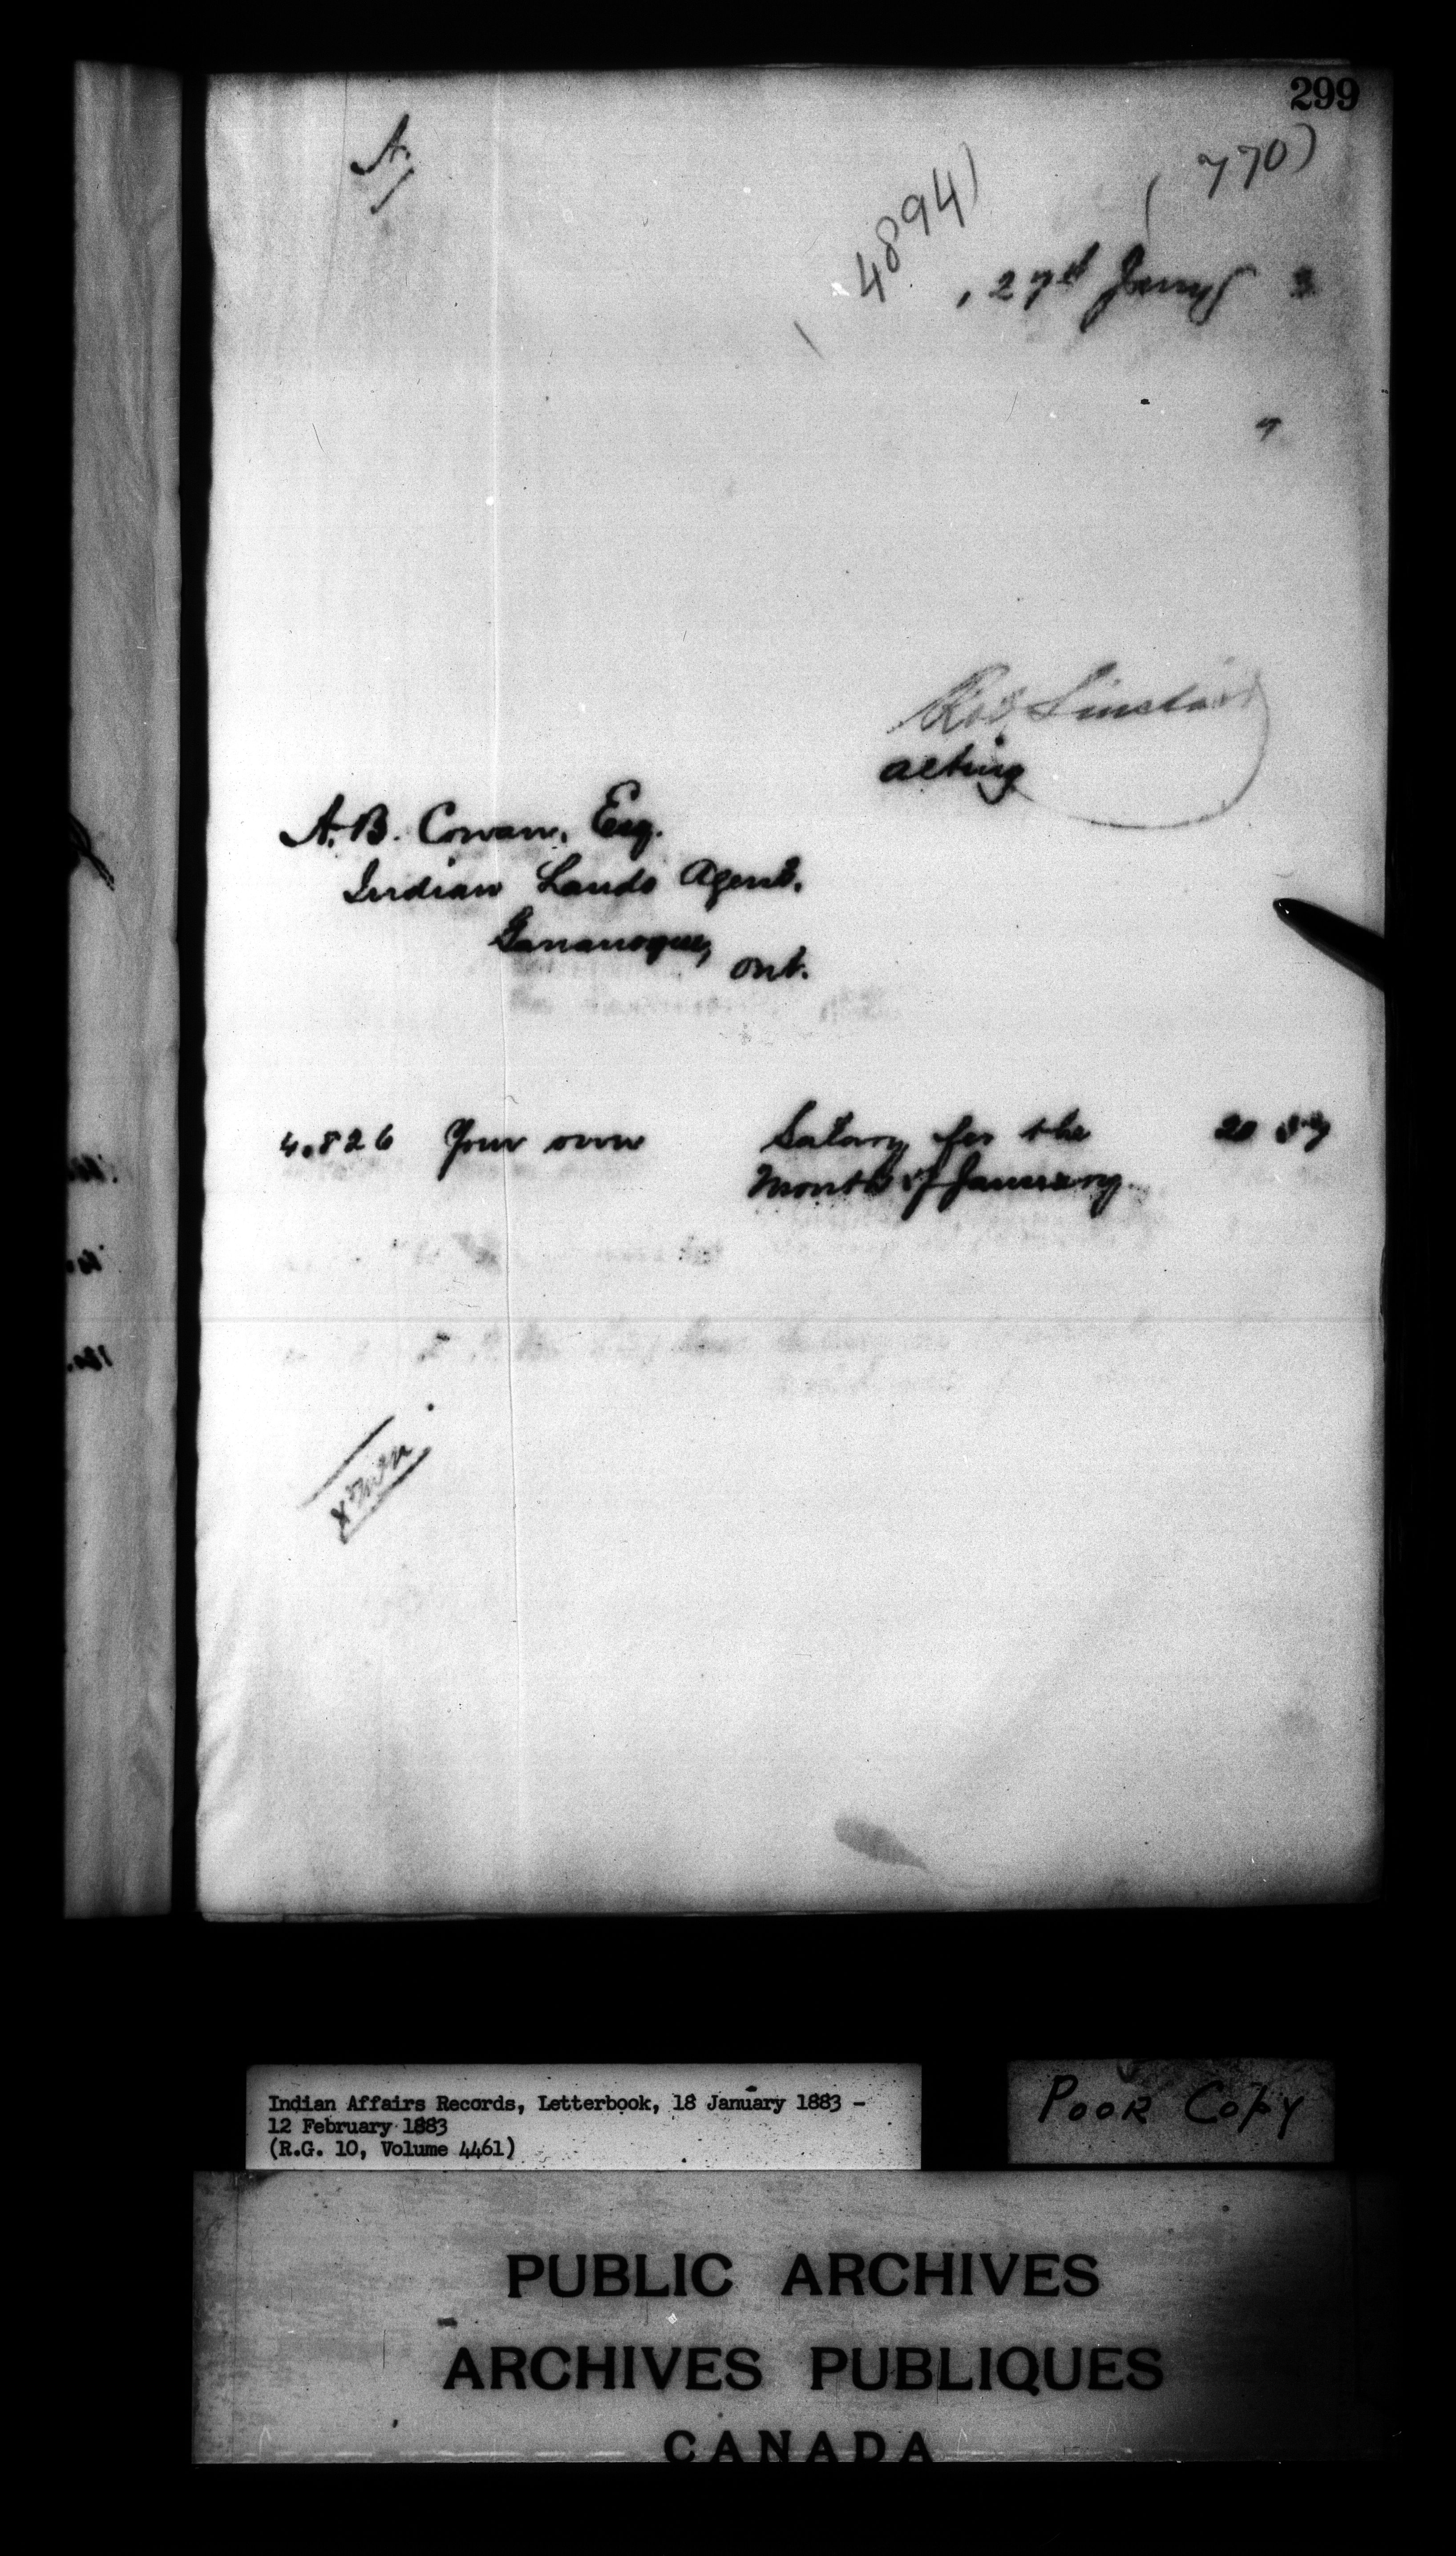 299
A.
(770)
4894)
, 27th Jany 3
Robt Sinclair
acting
A. B. Cowan, Esq.
Indian Lands Agent,
Gananoque,
Ont.
4.826 Your own Salary for the 20
Month of January.
Indian Affairs Records, Letterbook, 18 January 1883 -
12 February 1883
(R.G. 10, Volume 4461)
Poor Copy
PUBLIC ARCHIVES
ARCHIVES PUBLIQUES
CANADA